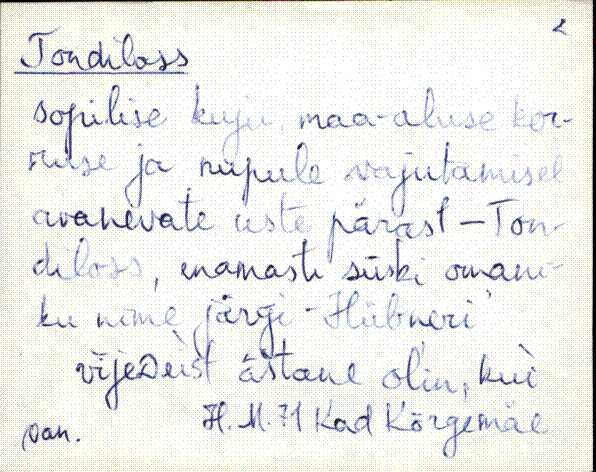 2
Tondiloss
sopilise kuju, maa-aluse kor-
ruse ja nupule vajutamisel
avanevate uste pärast – Ton-
diloss, enamasti siiski omani-
ku nime järgi - Hübneri
viješeist ästane olin, kui
H. M. 71 Kad Kõrgemäe